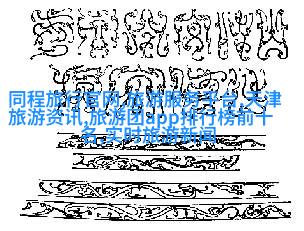 同程旅行官网,旅游服务平台,天津
旅游资讯,旅游团app排行榜前十
名,实时旅游新闻